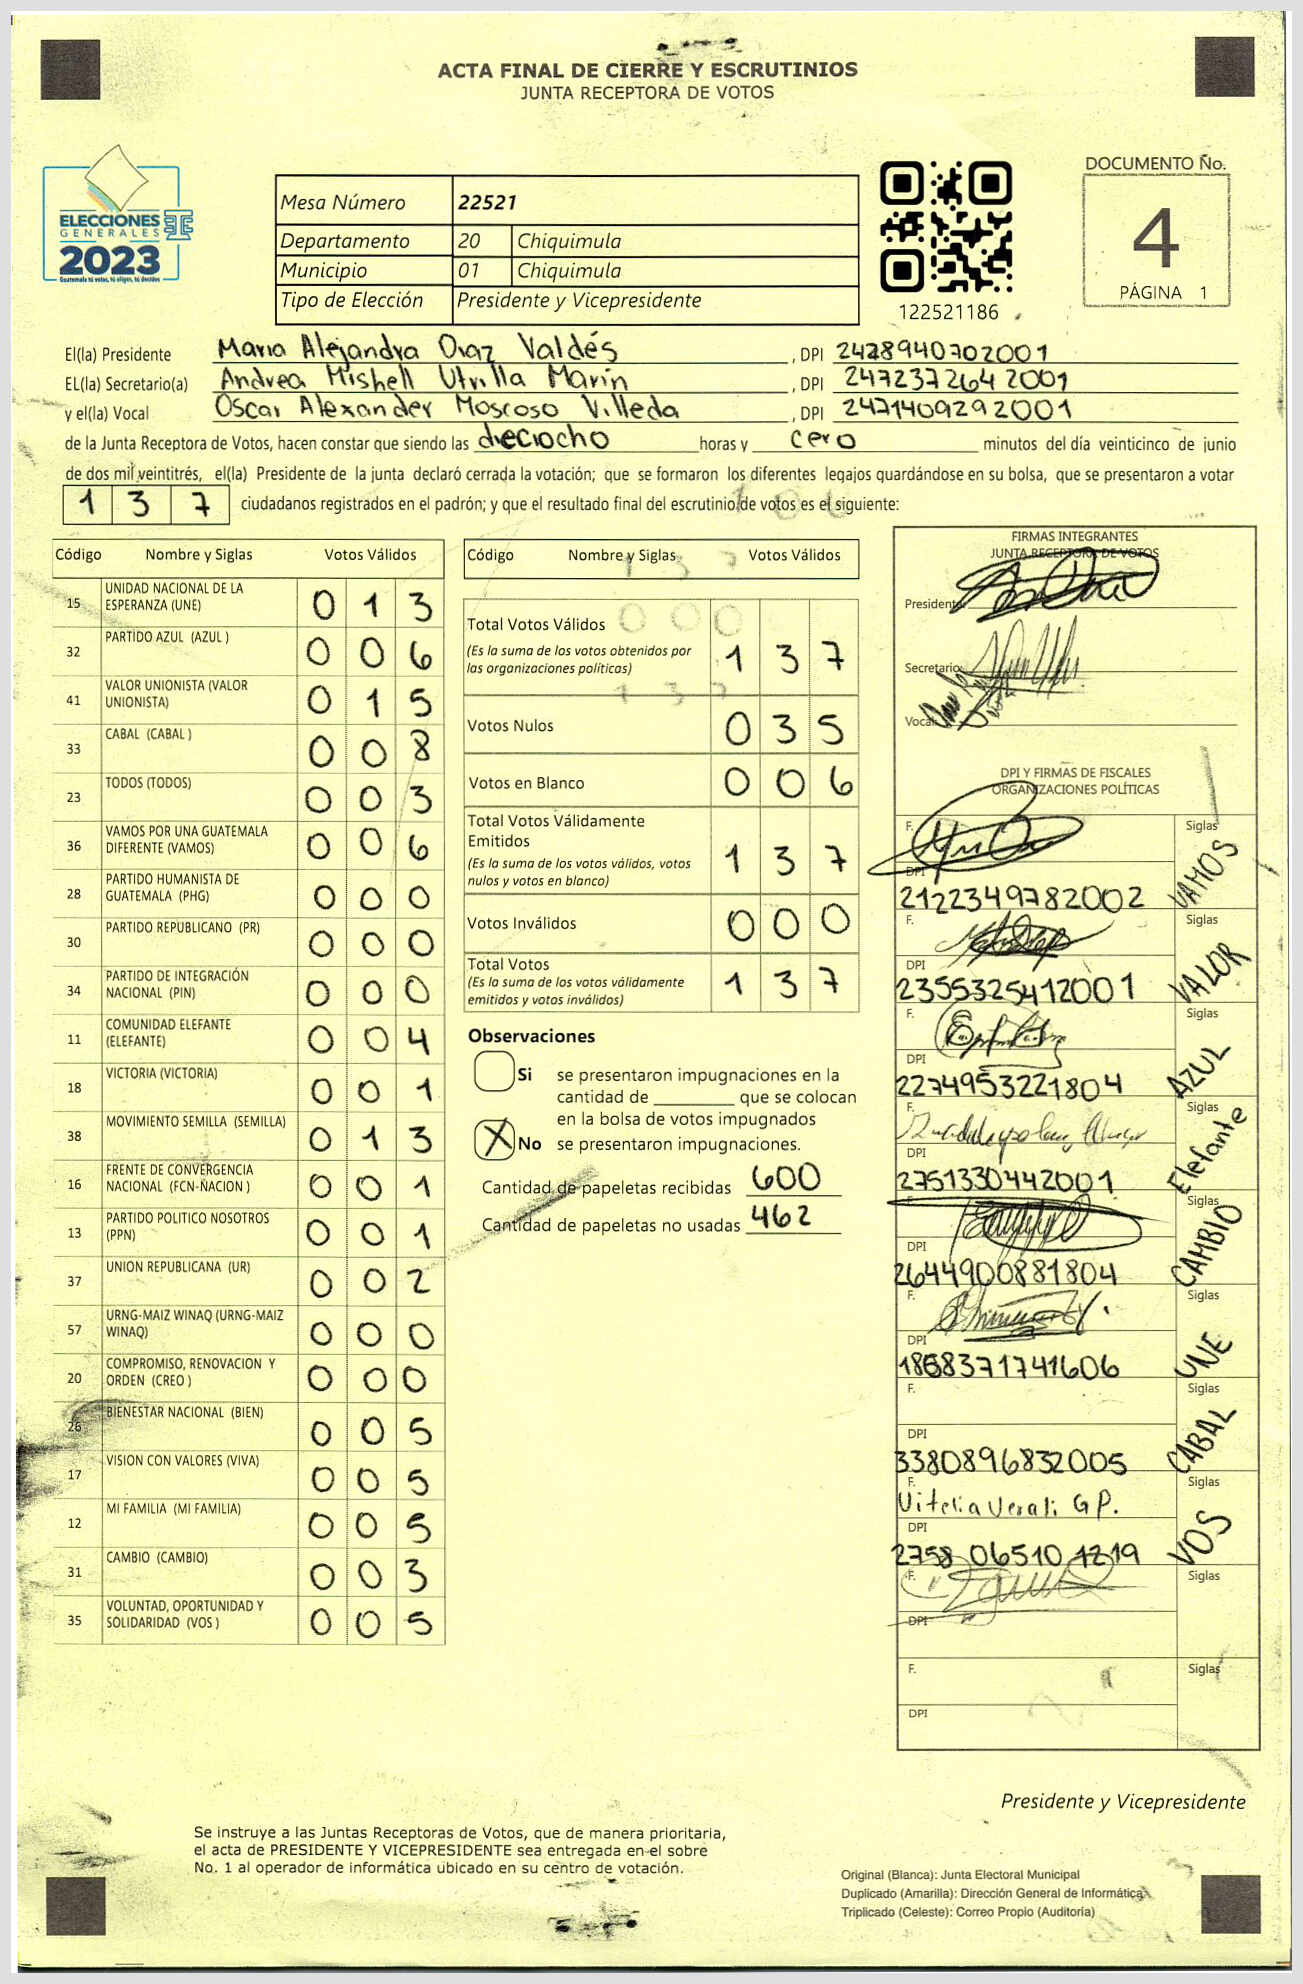 ACTA FINAL DE CIERRE Y ESCRUTINIOS
JUNTA RECEPTORA DE VOTOS
ELECCIONES
GENERALES
2023
Guatemala tú votas, tú eliges, tú decides
Mesa Número 22521
Departamento 20 Chiquimula
Municipio 01 Chiquimula
Tipo de Elección Presidente y Vicepresidente
122521186
DOCUMENTO No.
4
PÁGINA 1
El(la) Presidente Maria Alejandra Diaz Valdés , DPI 2428940702001
EL(la) Secretario(a) Andrea Mishell Utrilla Marin , DPI 2472372642001
y el(la) Vocal Oscar Alexander Moscoso Villeda , DPI 2471409292001
de la Junta Receptora de Votos, hacen constar que siendo las dieciocho horas y cero minutos del día veinticinco de junio
de dos mil veintitrés, el(la) Presidente de la junta declaró cerrada la votación; que se formaron los diferentes legajos guardándose en su bolsa, que se presentaron a votar
137 ciudadanos registrados en el padrón; y que el resultado final del escrutinio de votos es el siguiente:
Código Nombre y Siglas Votos Válidos
15 UNIDAD NACIONAL DE LA ESPERANZA (UNE) 013
32 PARTIDO AZUL (AZUL ) 006
41 VALOR UNIONISTA (VALOR UNIONISTA) 015
33 CABAL (CABAL ) 008
23 TODOS (TODOS) 003
36 VAMOS POR UNA GUATEMALA DIFERENTE (VAMOS) 006
28 PARTIDO HUMANISTA DE GUATEMALA (PHG) 000
30 PARTIDO REPUBLICANO (PR) 000
34 PARTIDO DE INTEGRACIÓN NACIONAL (PIN) 000
11 COMUNIDAD ELEFANTE (ELEFANTE) 004
18 VICTORIA (VICTORIA) 001
38 MOVIMIENTO SEMILLA (SEMILLA) 013
16 FRENTE DE CONVERGENCIA NACIONAL (FCN-NACION ) 001
13 PARTIDO POLITICO NOSOTROS (PPN) 001
37 UNION REPUBLICANA (UR) 002
57 URNG-MAIZ WINAQ (URNG-MAIZ WINAQ) 000
20 COMPROMISO, RENOVACION Y ORDEN (CREO ) 000
26 BIENESTAR NACIONAL (BIEN) 005
17 VISION CON VALORES (VIVA) 005
12 MI FAMILIA (MI FAMILIA) 005
31 CAMBIO (CAMBIO) 003
35 VOLUNTAD, OPORTUNIDAD Y SOLIDARIDAD (VOS ) 005
Código Nombre y Siglas Votos Válidos
Total Votos Válidos
(Es la suma de los votos obtenidos por
las organizaciones políticas) 137
Votos Nulos 035
Votos en Blanco 006
Total Votos Válidamente
Emitidos
(Es la suma de los votos válidos, votos
nulos y votos en blanco) 137
Votos Inválidos 000
Total Votos
(Es la suma de los votos válidamente
emitidos y votos inválidos) 137
Observaciones
Si se presentaron impugnaciones en la
cantidad de ________ que se colocan
en la bolsa de votos impugnados
X No se presentaron impugnaciones.
Cantidad de papeletas recibidas 600
Cantidad de papeletas no usadas 462
FIRMAS INTEGRANTES
JUNTA RECEPTORA DE VOTOS
Presidente
Secretario
Vocal
DPI Y FIRMAS DE FISCALES
ORGANIZACIONES POLÍTICAS
F. Siglas VAMOS
DPI 2122349782002
F. Siglas VALOR
DPI 2355325412001
F. Siglas AZUL
DPI 2274953221804
F. Siglas Elefante
DPI 2751330442001
F. Siglas CAMBIO
DPI 2644900881804
F. Siglas UNE
DPI 1858371741606
F. Siglas CABAL
DPI 3380896832005
F. Siglas VOS
DPI 2758 06510 1219
F. Siglas
DPI
F. Siglas
DPI
Presidente y Vicepresidente
Se instruye a las Juntas Receptoras de Votos, que de manera prioritaria,
el acta de PRESIDENTE Y VICEPRESIDENTE sea entregada en el sobre
No. 1 al operador de informática ubicado en su centro de votación.
Original (Blanca): Junta Electoral Municipal
Duplicado (Amarilla): Dirección General de Informática
Triplicado (Celeste): Correo Propio (Auditoría)